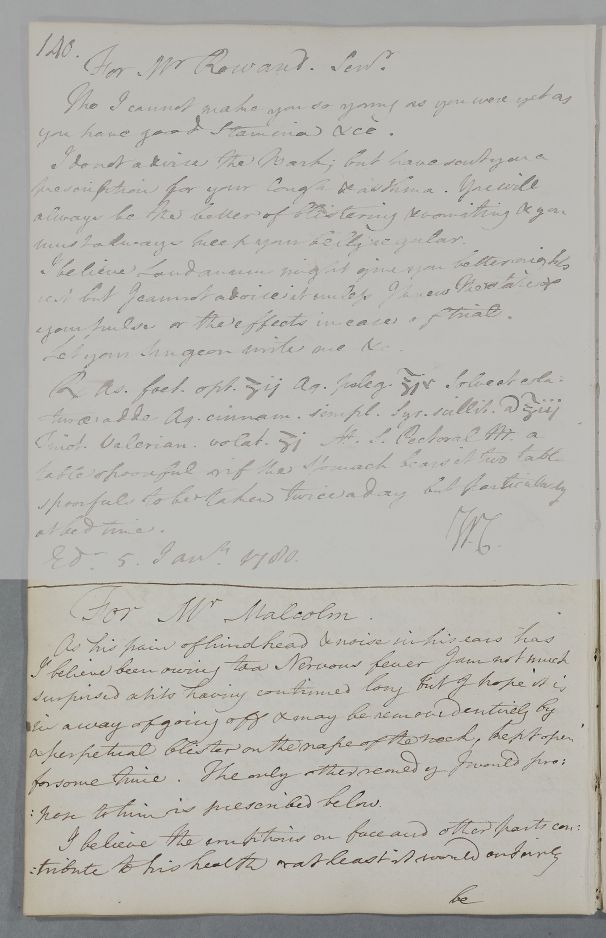 140.
For Mr Rowand. Senr.
Tho I cannot make you so young as you were yet as
you have good Stamina &cc.
I do not advise the Bark; but have sent you a
prescription for your Cough & asthma. You will
always be the better of blistering & vomiting & you
must always keep your belly regular.
I believe Laudanum might give you better nights
rest but I cannot advise it unless I knew the state of
your pulse or the effects in case of trial.
Let your Surgeon write me &c.
℞ As. foet. opt. ʒij Aq. puleg. Solve et cola:
turae adde Aq. cinnam. simpl. Syr. scillit. a ʒiij
Tinct. Valerian. volat. ʒj M. S. Pectoral Mt. a
table spoonful or if the Stomach bears it two table
spoonfuls to be taken twice a day but particularly
at bed time.
Edr. 5. Janry. 1780. W.C.
For Mr Malcolm.
As his pain of hindhead & noise in his ears has
I believe been owing to a Nervous fever I am not much
surprised at its having continued long but I hope it is
in a way of going off & may be removed entirely by
a perpetual blister on the nape of the neck, kept open
for some time. The only other remedy I would pro:
:pose to him is prescribed below.
I believe the eruptions on face and other parts con:
:tribute to his health or at least it would
be